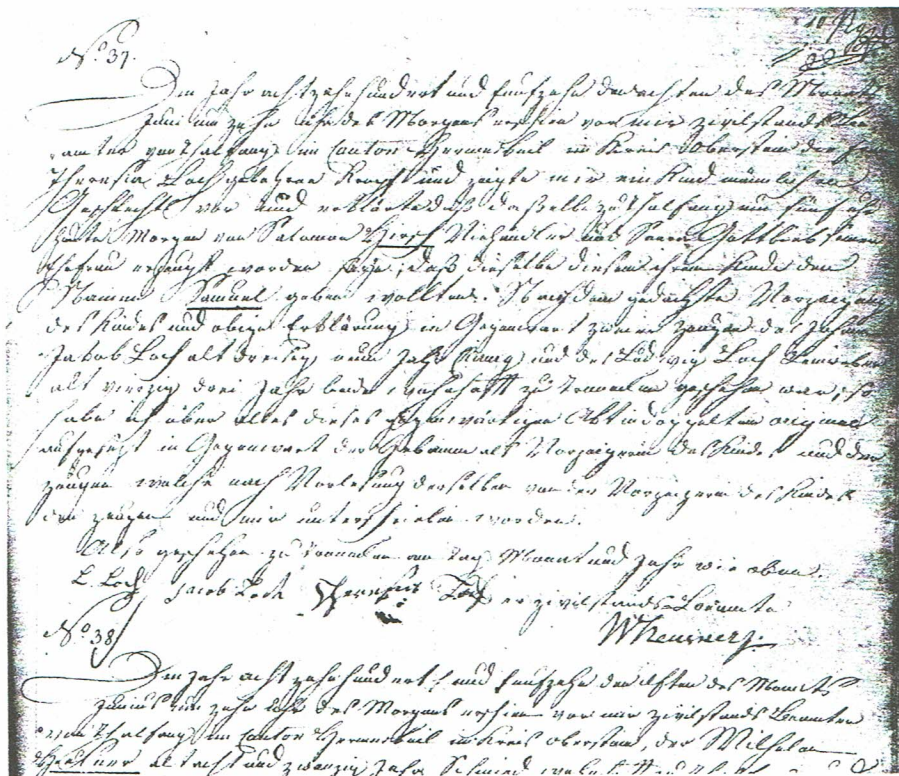 No. 37.
Im Jahr achtzehnhundert und fünfzehn den achten des Monats
Juni um zehn Uhr des Morgens erschien vor mir Zivilstands Be
amter von Thalfang im Canton Hermeskeil im Kreis Oberstein die Frau
Theresia Loch gebohrne und zeigte mir ein Kind männlichen
Geschlechts vor und erklärte daß dasselbe zu Thalfang um fünf Uhr
heute Morgen von Salomon Hirsch Viehändler und Gottlieb seiner
Ehefrau erzeugt worden seye, daß dieselbe diesem ihrem Kinde den
Namen Samuel geben wollten. Nachdem gedachte Vorzeigung
des Kindes und obige Erklärung in Gegenwart zweier Zeugen des
Jacob Loch alt dreisig neun Jahr und des Ludwig Loch
alt vierzig drei Jahr beide wohnhaft zu geschehen war, so
habe ich über alles dieses gegenwärtigen Akt in doppelten original
aufgesetzt in Gegenwart der Hebamme als Vorzeigerin des Kindes und der
Zeugen welche nach Vorlesung derselben von der Vorzeigerin des Kindes
den Zeugen und mir unterschrieben worden.
Also geschehen zu am Tag Monat und Jahr wie oben.
L. Loch Jacob Loch Theresia Loch er Zivilstands Beamte
No. 38
Im Jahr acht zehnhundert und fünfzehn den elften des Monats
Junius um zehn Uhr des Morgens erschien vor mir Zivilstands Beamten
von Thalfang im Canton Hermeskeil im Kreis Oberstein, der Wilhelm
alt acht und zwanzig Jahr Schmied